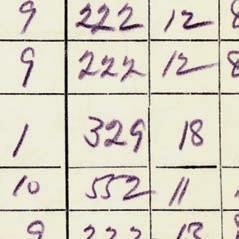 9 222 12 8
9 222 12 8
1 329 18
10 552 11
9 222 13